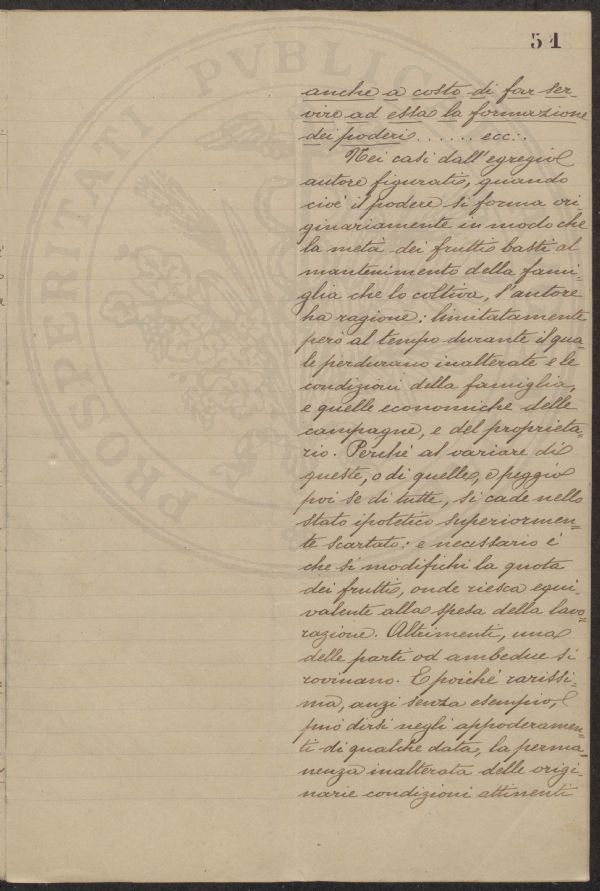 51
PROSPERITATI PVBLIC
anche a costo di far ser-
vire ad essa la formazione
dei poderi . . . . . . ecc:.
Nei casi dall'egregio
autore figurati, quando
cioè il podere si forma ori-
ginariamente in modo che
la metà dei frutti basti al
mantenimento della fami-
glia che lo coltiva, l'autore
ha ragione: limitatamente
però al tempo durante il qua-
le perdurano inalterate e le
condizioni della famiglia,
e quelle economiche delle
campagne, e del proprieta-
rio. Perchè al variare di
queste, o di quelle, e peggio
poi se di tutte, si cade nello
stato ipotetico superiormen-
te scartato: e necessario è
che si modifichi la quota
dei frutti, onde riesca equi-
valente alla spesa della lavo-
razione. Altrimenti, una
delle parti od ambedue si
rovinano. E poichè rarissi-
ma, anzi senza esempio,
può dirsi negli appoderamen-
ti di qualche data, la perma-
nenza inalterata delle origi-
narie condizioni attinenti